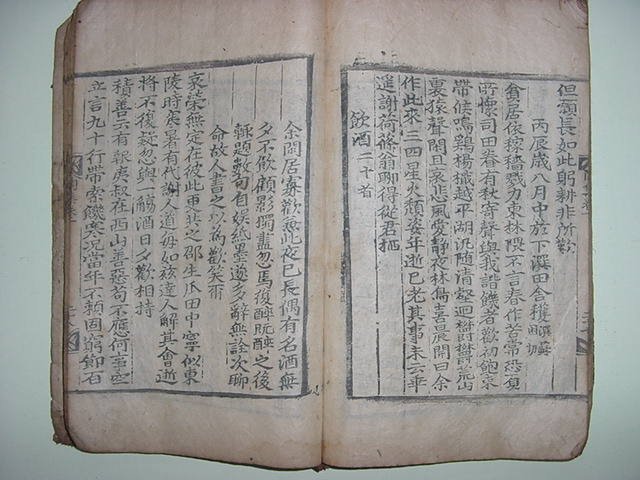 但願長如此躬耕非所歎
丙辰歲八月中於下潠田舍穫
貧居依稼穡戮力東林隈不言春作苦常恐負
所懷司田眷有秋寄聲與我諧饑者歡初飽束
帶候鳴鷄楊檝越平湖汎隨清壑迴欝欝荒山
裏猿聲閑且哀悲風愛靜夜林鳥喜晨開曰余
作此來三四星火頹姿年逝已老其事未云乖
遥謝荷篠翁聊得從君栖
飮酒二十首
余閑居寡歡兼此夜已長偶有名酒無
夕不飮顧影獨盡忽焉復醉旣醉之後
輒題數句自娛紙墨遂多辭無詮次聊
命故人書之以爲歡笑爾
衰榮無定在彼此更共之邵生瓜田中寧似東
陵時寒暑有代謝人道每如兹達人解其會逝
將不復疑忽與一觴酒日夕歡相持
積善云有報夷叔在西山善惡苟不應何事空
立言九十行帶索饑寒況當年不賴固窮節百